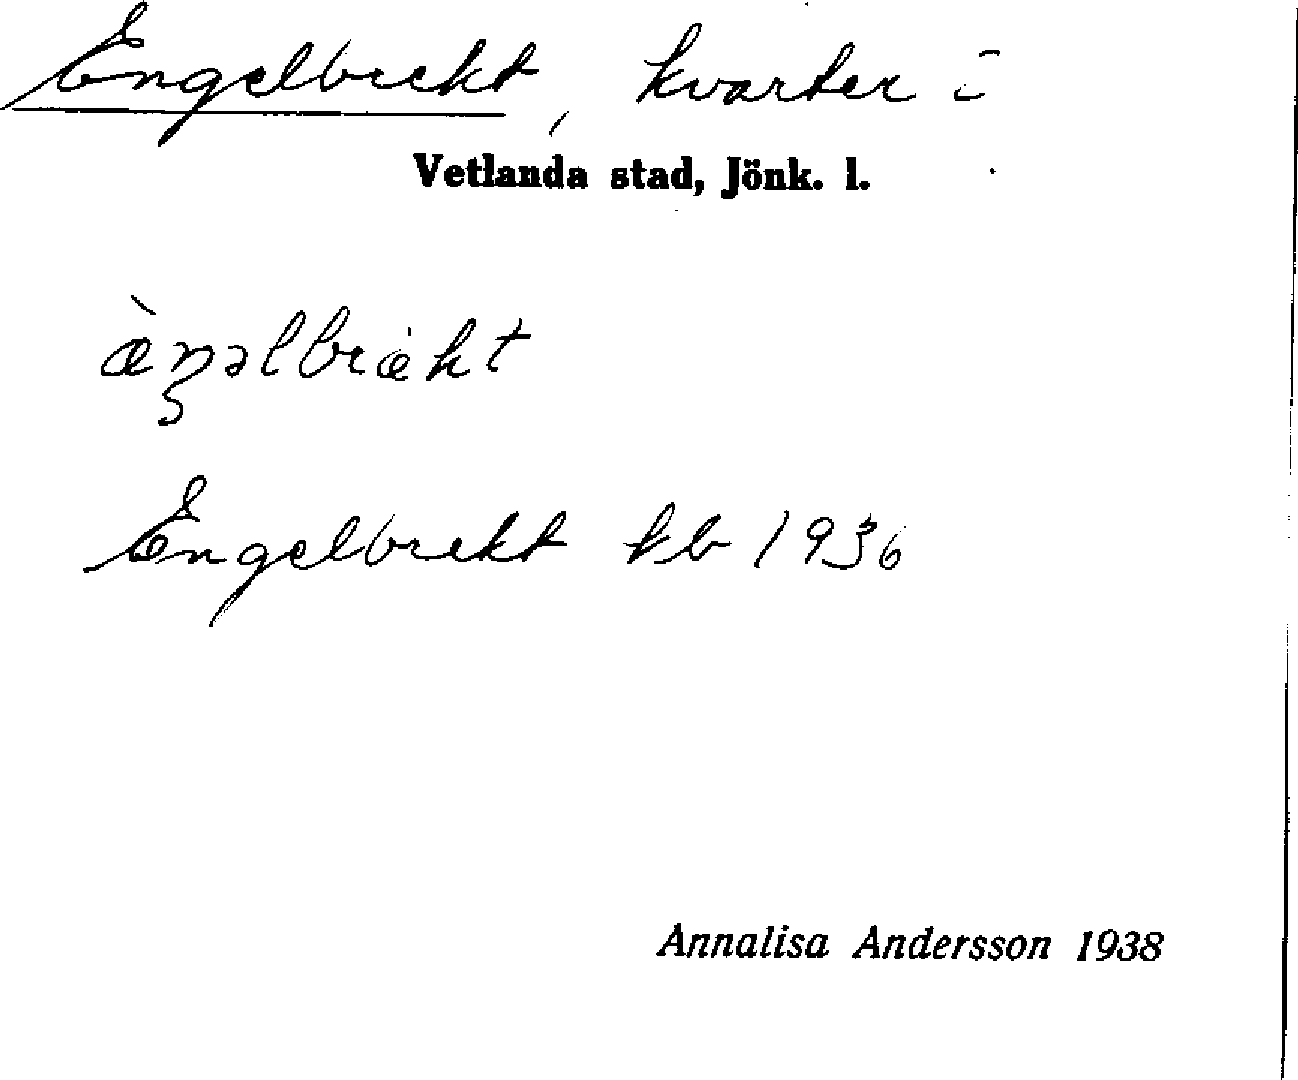 Engelbrekt, kvarter i
Vetlanda stad, Jönk. l.
æ̀ŋəlbrækt
Engelbrekt kb 1936
Annalisa Andersson 1938